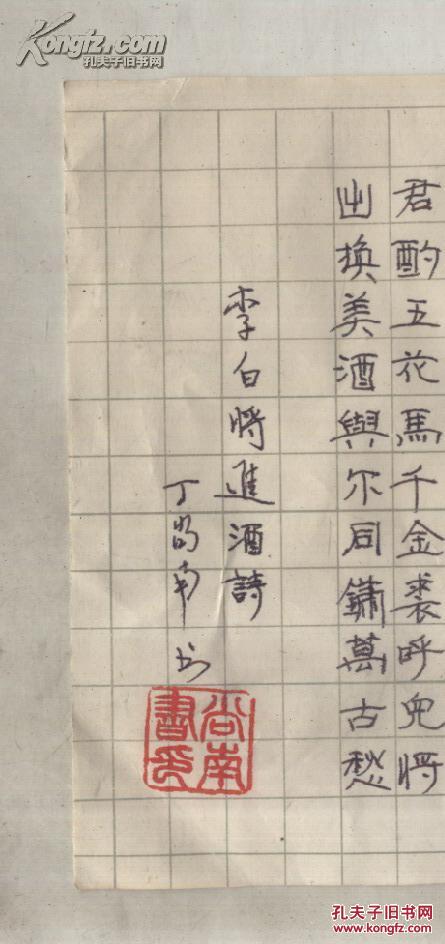 Kongfz.com
孔夫子旧书网
君酌五花馬千金裘呼兒將
出換美酒與尔同萬古愁
李白將進酒詩
丁尚南书
尚南書印
孔夫子旧书网
www.kongfz.com